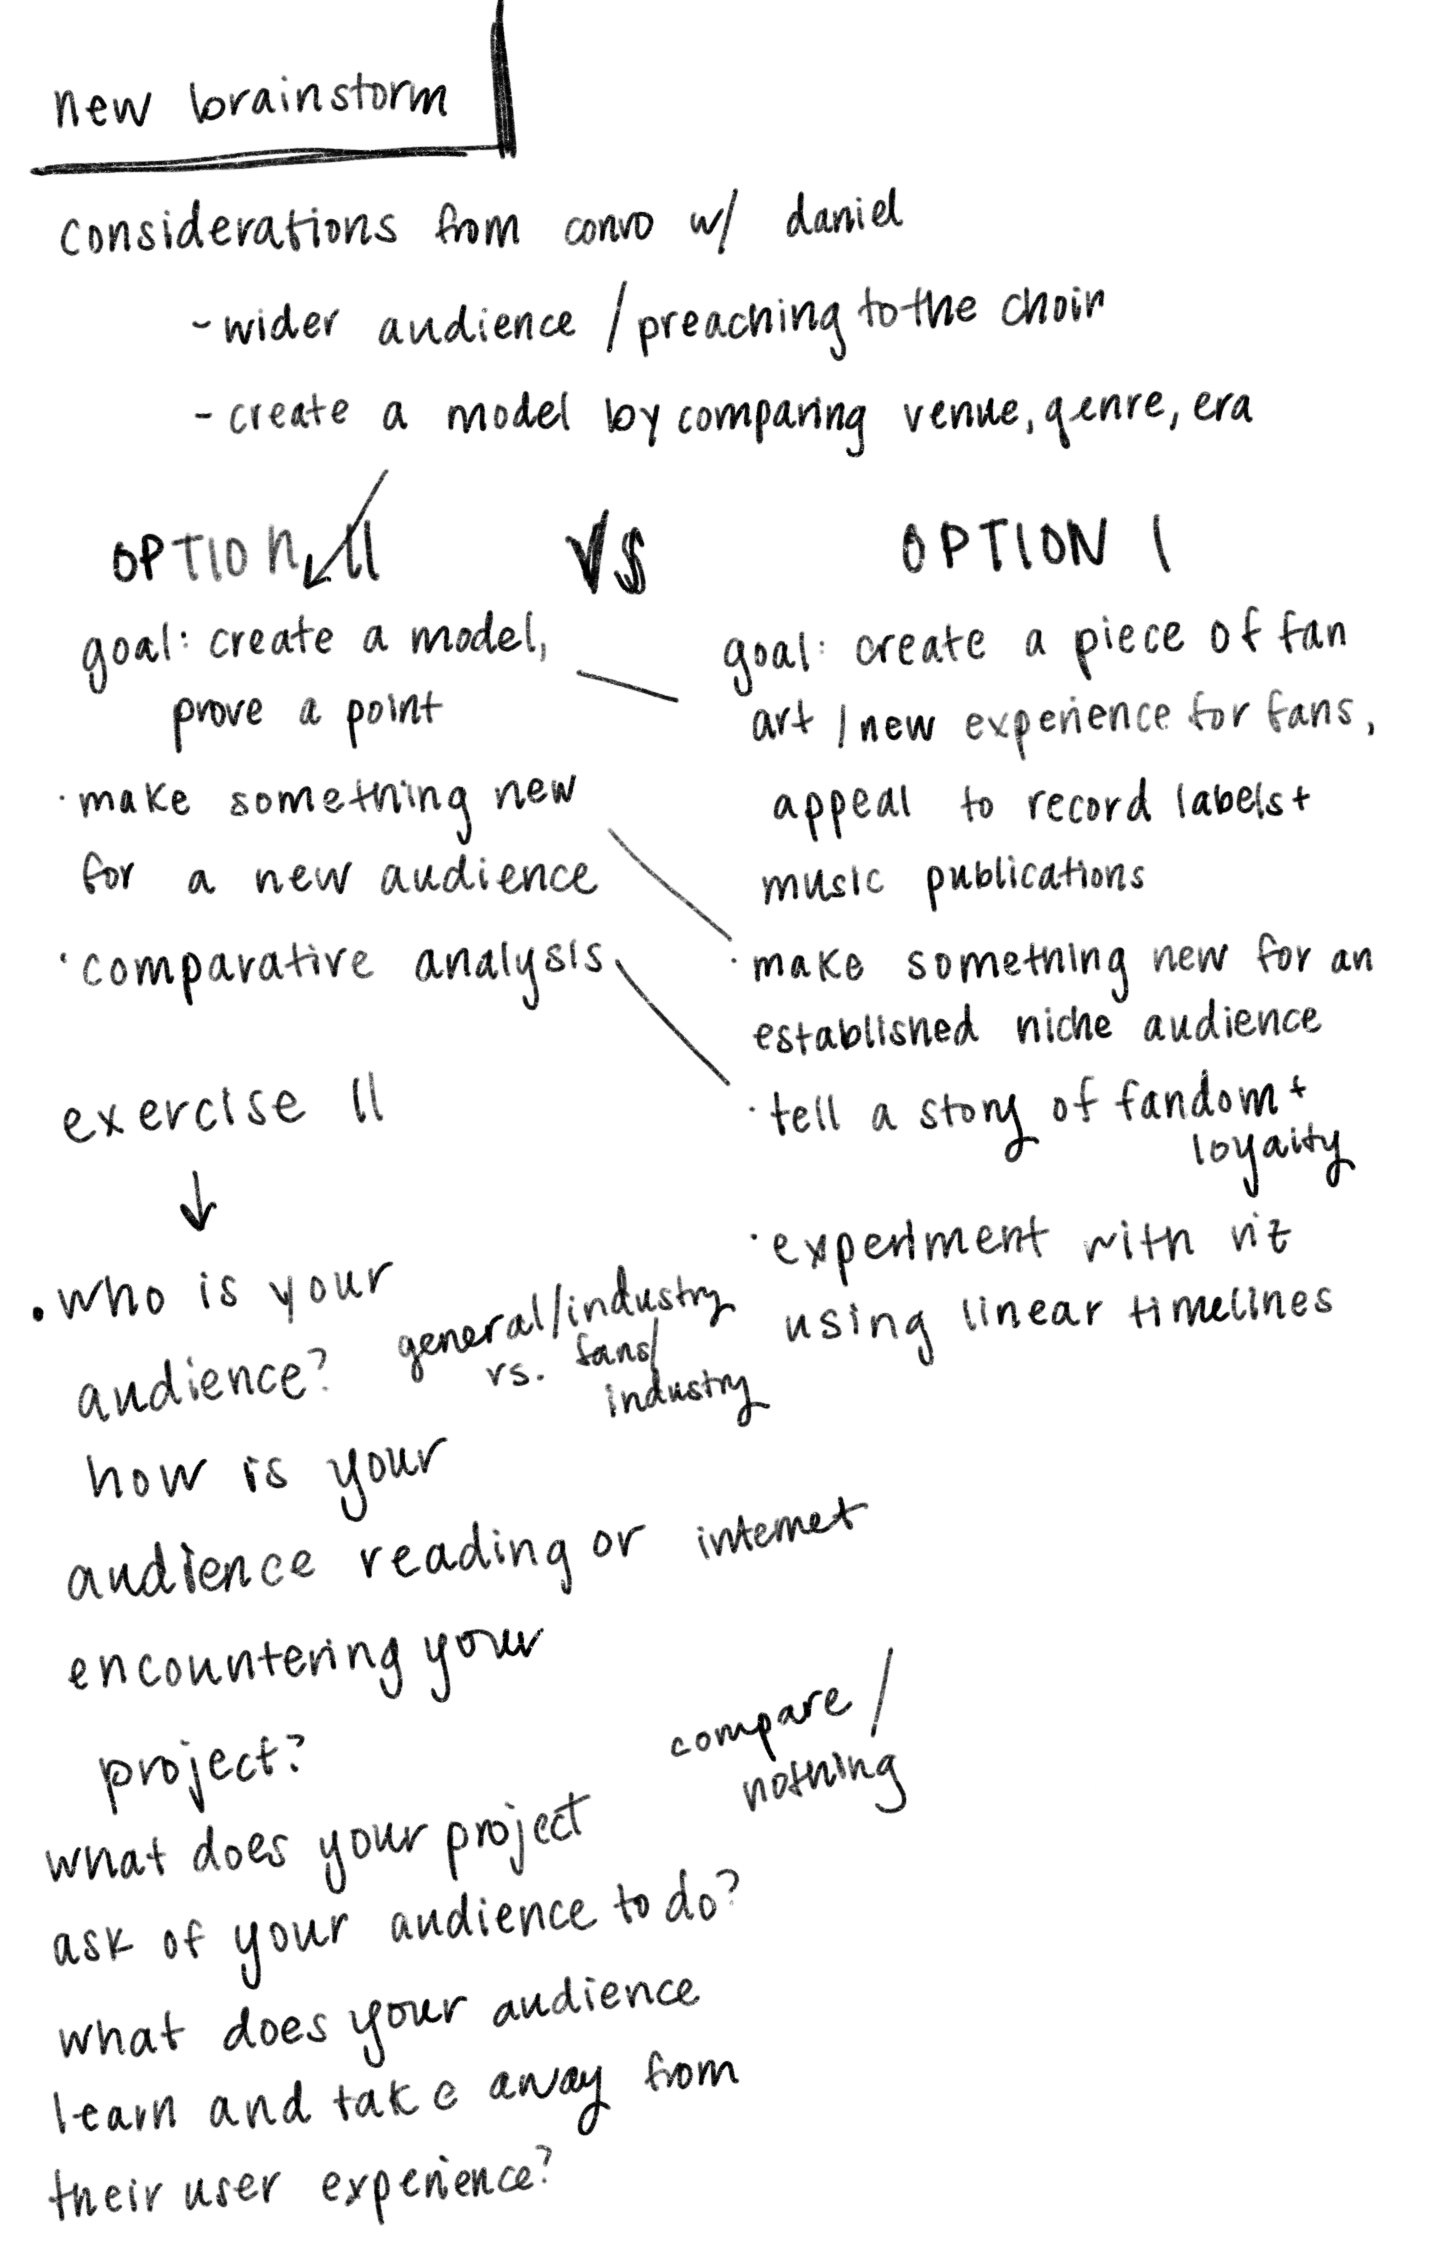 new brainstorm
considerations from convo w/ daniel
- wider audience / preaching to the choir
- create a model by comparing venue, genre, era
OPTION II
goal: create a model,
prove a point
· make something new
for a new audience
· comparative analysis
VS
OPTION I
goal: create a piece of fan
art / new experience for fans,
appeal to record labels +
music publications
· make something new for an
established niche audience
· tell a story of fandom +
loyalty
· experiment with viz
using linear timelines
exercise II
· who is your
audience?
general/industry
vs. fans/
industry
how is your
audience reading or
encountering your
project?
internet
what does your project
ask of your audience to do?
compare /
nothing
what does your audience
learn and take away from
their user experience?